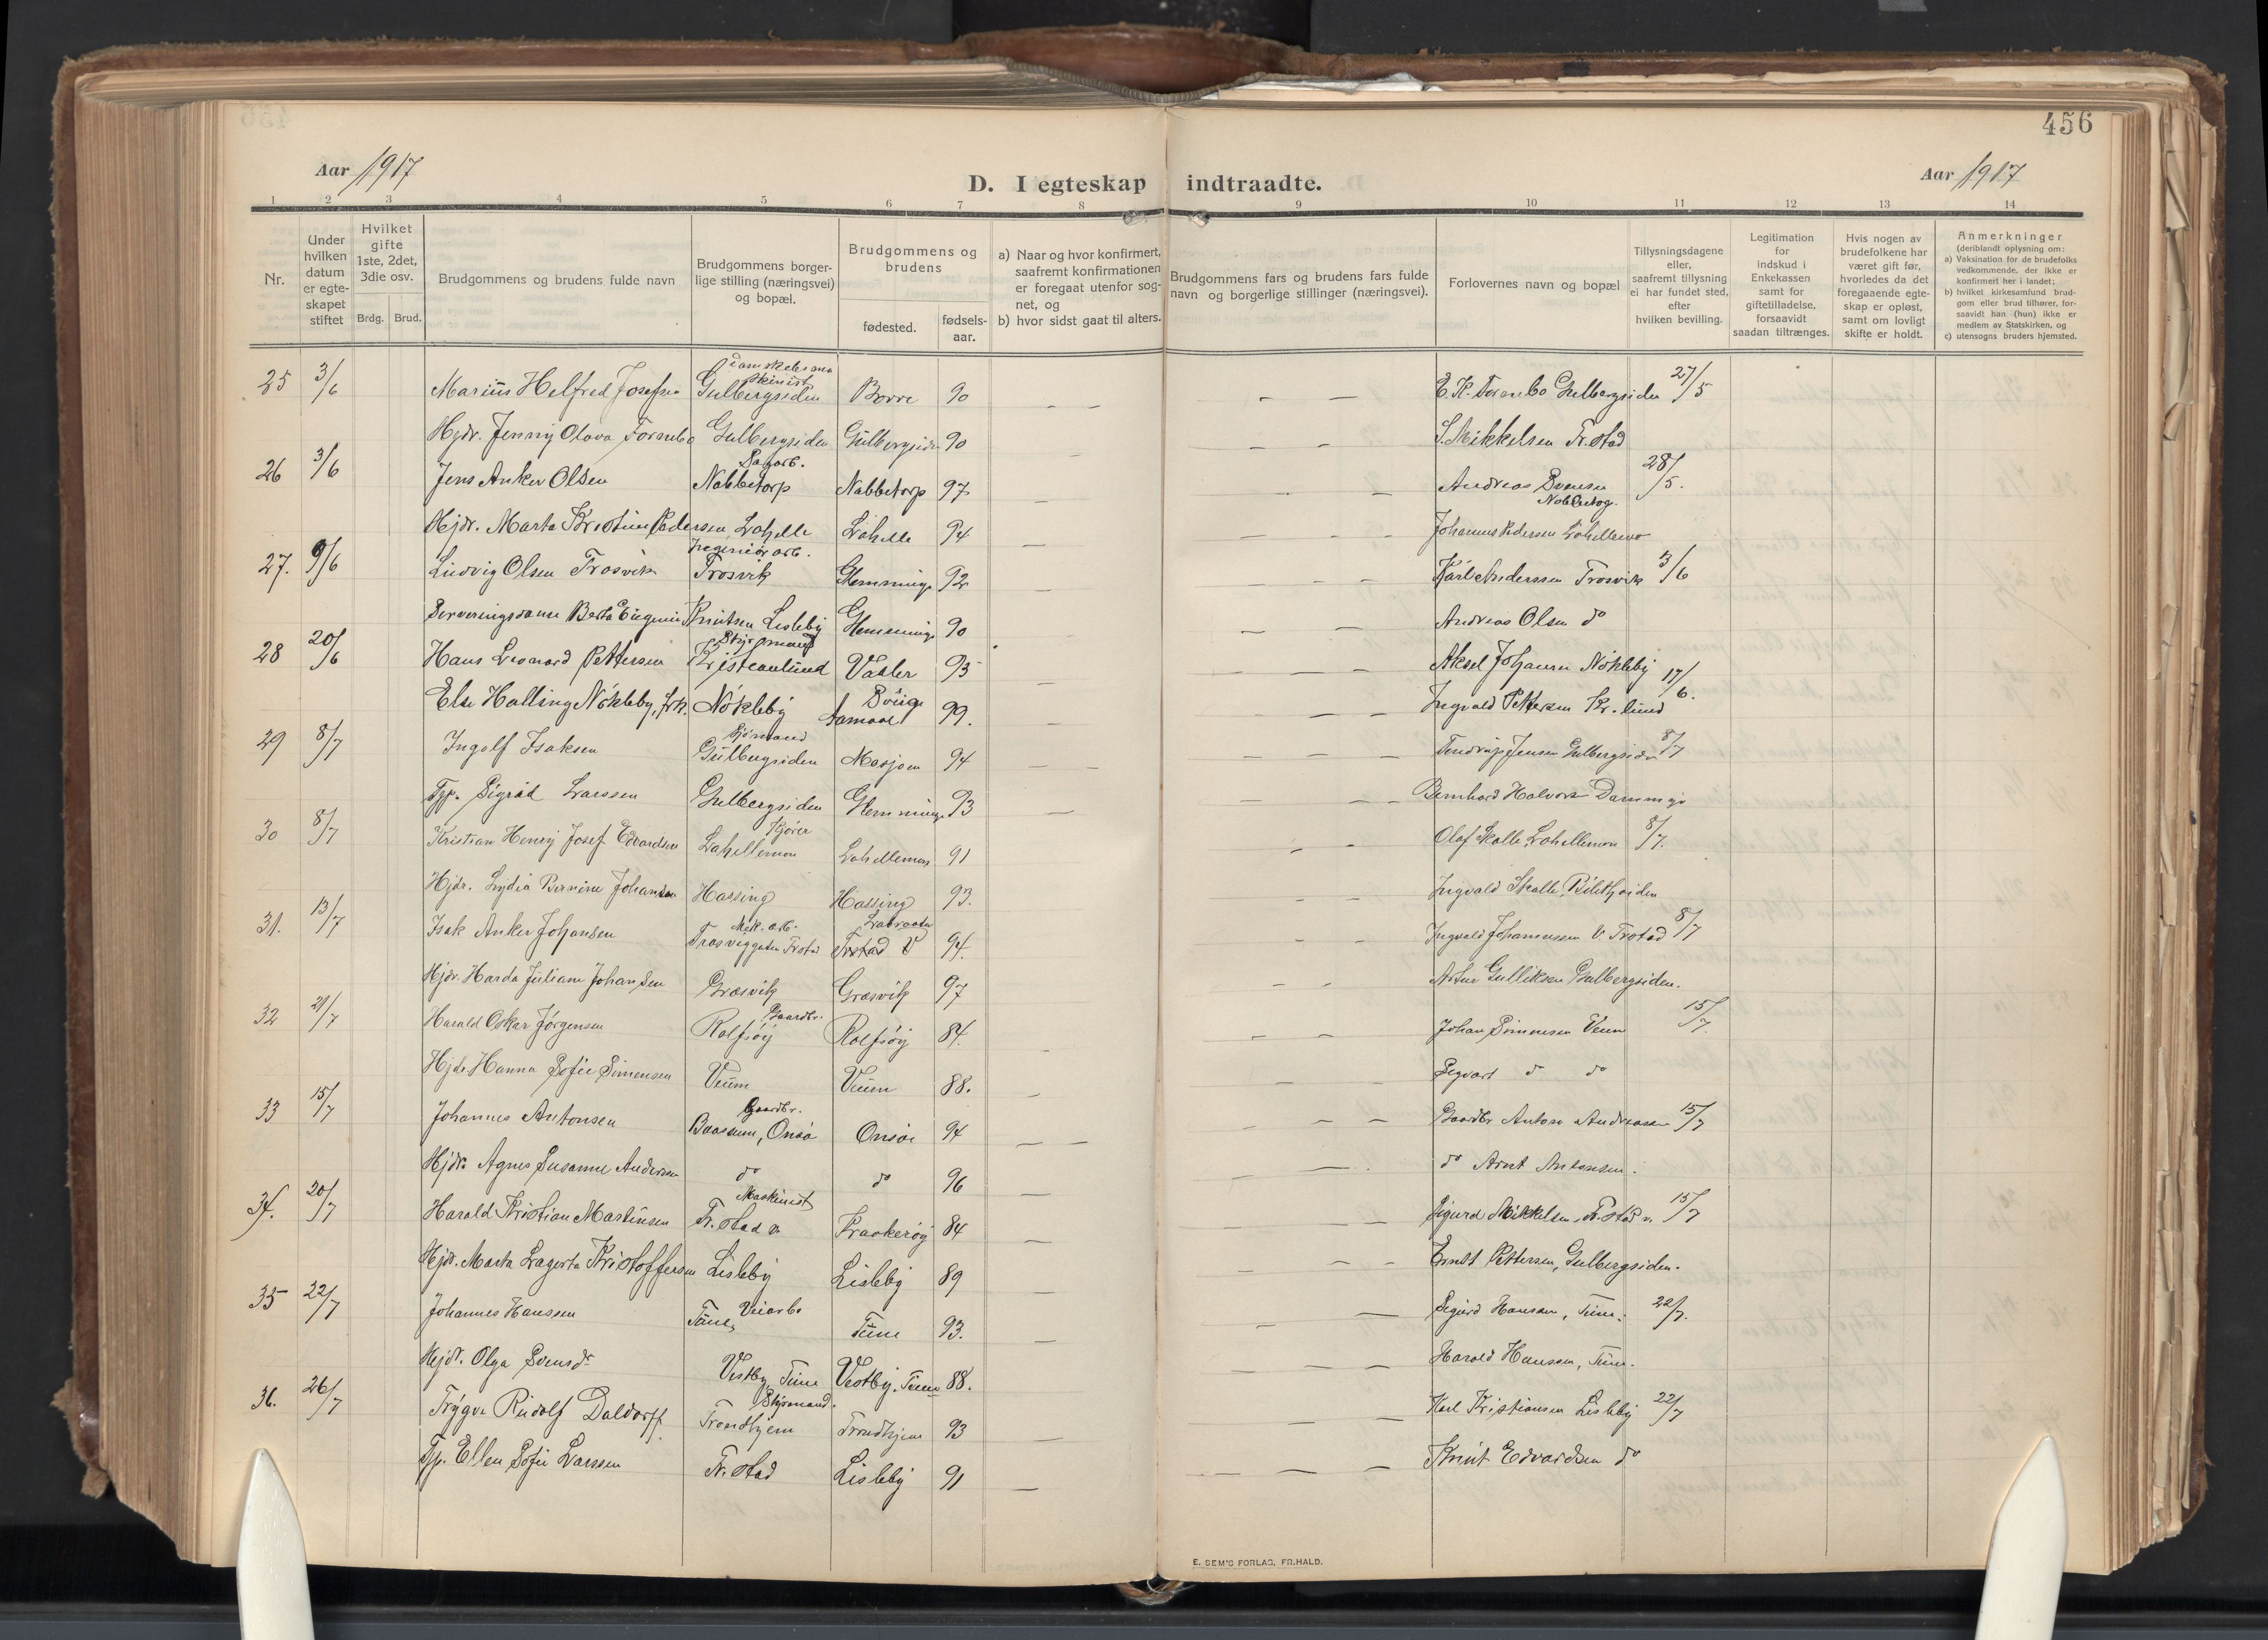 456
Aar 1917
D. I egteskap indtraadte.
Aar 1917
1 2 3 4 5 6 7 8 9 10 11 12 13 14
Nr.
Under hvilken datum er egteskapet stiftet
Hvilket gifte 1ste, 2det, 3die osv.
Brdg. Brud.
Brudgommens og brudens fulde navn
Brudgommens borgerlige stilling (næringsvei) og bopæl.
Brudgommens og brudens
fødested.
fødselsaar.
a) Naar og hvor konfirmert, saafremt konfirmationen er foregaat utenfor sognet, og
b) hvor sidst gaat til alters.
Brudgommens fars og brudens fars fulde navn og borgerlige stillinger (næringsvei).
Forlovernes navn og bopæl
Tillysningsdagene eller, saafremt tillysning ei har fundet sted, efter hvilken bevilling.
Legitimation for indskud i Enkekassen samt for giftetilladelse, forsaavidt saadan tiltrænges.
Hvis nogen av brudefolkene har været gift før, hvorledes da det foregaaende egteskap er opløst, samt om lovligt skifte er holdt.
Anmerkninger
(deriblandt oplysning om:
a) Vaksination for de brudefolks vedkommende, der ikke er konfirmert her i landet;
b) hvilket kirkesamfund brudgom eller brud tilhører, forsaavidt han (hun) ikke er medlem av Statskirken, og
c) utensogns bruders hjemsted.
25 3/6 Marius Helfred Josefsen Gulbergsiden Borre 90 27/5
Hjdr. Jenny Olava Fornebo Gulbergsiden Gulbergsiden 90 S. Mikkelsen Fr.stad
26 3/6 Jens Anker Olsen Sagarb. Nabbetorp Nabbetorp 97 Andreas Svensen Nabbetorp 28/5.
Hjdr. Marta Kristine Pedersen Lahelle Lahelle 94 Johannes Pedersen Lahellemo
27. 9/6 Ludvig Olsen Trosvik Trosvik Glemminge 92 Karl Anderssen Trosvik 3/6
Serveringsdame Berta Eugenie Knutsen Lisleby Glemminge 90 Andreas Olsen do
28 20/6 Hans Leonard Pettersen Styrmand Kristianlund Vaaler 93 Aksel Johansen Nökleby 17/6.
Else Halling Nökleby, frk. Nökleby 99. Ingvald Pettersen Kr.lund
29 8/7 Ingolf Isaksen Sjömand Gulbergsiden Mosjoen 94 Jensen Gulbergsiden 8/7
Tjp. Sigrid Larssen Gulbergsiden Glemminge 93 Bernhard Halvors
30 8/7 Kristian Henry Josef Edvardsen Kjörer Lahellemoen Lahellemoen 91 Olaf Skalle Lahellemoen 8/7.
Hjdr. Lydia Bernine Johansen Hassing Hassing 93. Ingvald Skalle,
31. 13/7 Isak Anker Johansen Mek. arb. Trosviggaten Frstad Frstad V 94. Ingvald Johannessen V. Frstad 8/7
Hjdr. Harda Juliane Johansen Græsvik Græsvik 97 Artur Gulliksen Gulbergsiden.
32 21/7 Harald Oskar Jörgensen Gaardbr. Rolfsöy Rolfsöy 84. Johan Simensen Veum 15/7.
Hjdr Hanna Sofie Simensen Veum Veum 88. Sigvart do do
33 15/7 Johannes Antonsen Gaardbr. Onsö Onsöe 94 Gaardbr Anton Andreassen 15/7
Hjdr. Agnes Susanne Andersen do do 96 do Arnt Antonsen.
34. 20/7 Harald Kristian Martinsen Maskinist Fr.stad v. Kraakeröy 84 Sigurd Mikkelsen, Fr.stad v. 15/7
Hjdr. Marta Lagerta Kristoffersen Lisleby Lisleby 89 Ernst Pettersen, Gulbergsiden.
35 22/7 Johannes Hanssen Veiarb. Tune Tune 93. Sigurd Hansen, Tune. 22/7.
Hjdr. Olga Svensdr Vestby Tune Vestby. Tune 88. Harald Hanssen, Tune.
36. 26/7 Trygve Rudolf Daldorff Styrmand. Trondhjem Trondhjem 93 Karl Kristiansen Lisleby 22/7
Tjp. Ellen Sofie Larssen Fr.stad Lisleby 91 Knut Edvardsen do
E. SEM'S FORLAG, FR.HALD.